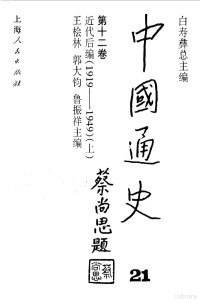 白寿彝总主编
中國通史
第十二卷
近代后编(1919——1949)(上)
王桧林 郭大钧 鲁振祥主编
蔡尚思题
上海人民出版社
21